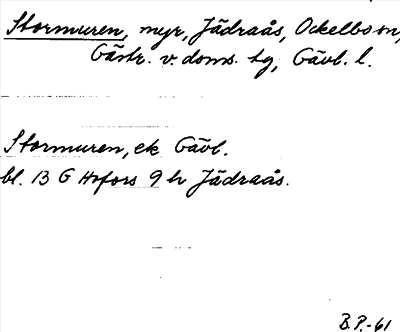 Stormuren, myr, Jädraås, Ockelbo sn,
Gästr. v. doms. tg, Gävl. l.
Stormuren, ek Gävl.
bl. 13 G Hofors 9 h Jädraås.
B.P.-61